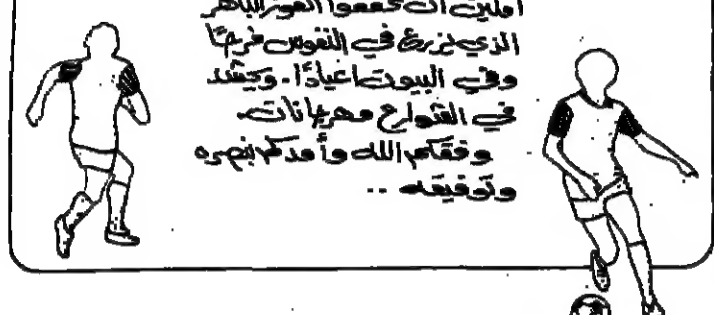 آملين أن تحققوا الفوز الباهر
الذي يزرع في النفوس فرحًا
وفي البيوت أعيادًا. ويشد
في الشوارع مهرجانات.
وفقكم الله وأمدكم بنصره
وتوفيقه ..